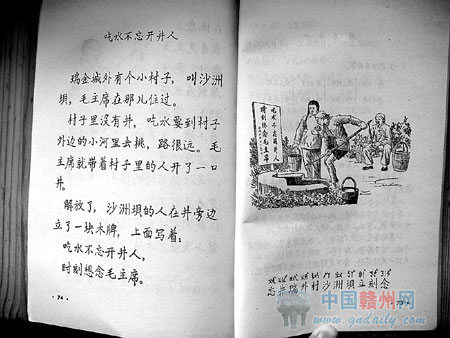 吃水不忘开井人
瑞金城外有个小村子，叫沙洲
坝，毛主席在那儿住过。
村子里没有井，吃水要到村子
外边的小河里去挑，路很远。毛
主席就带着村子里的人开了一口
井。
解放了，沙洲坝的人在井旁边
立了一块木牌，上面写着：
吃水不忘开井人，
时刻想念毛主席。
· 74 ·
吃水不忘开井人
时刻想念毛主席
忘 井 瑞 外 村 沙 洲 坝 立 刻 念
中国赣州网
www.gndaily.com